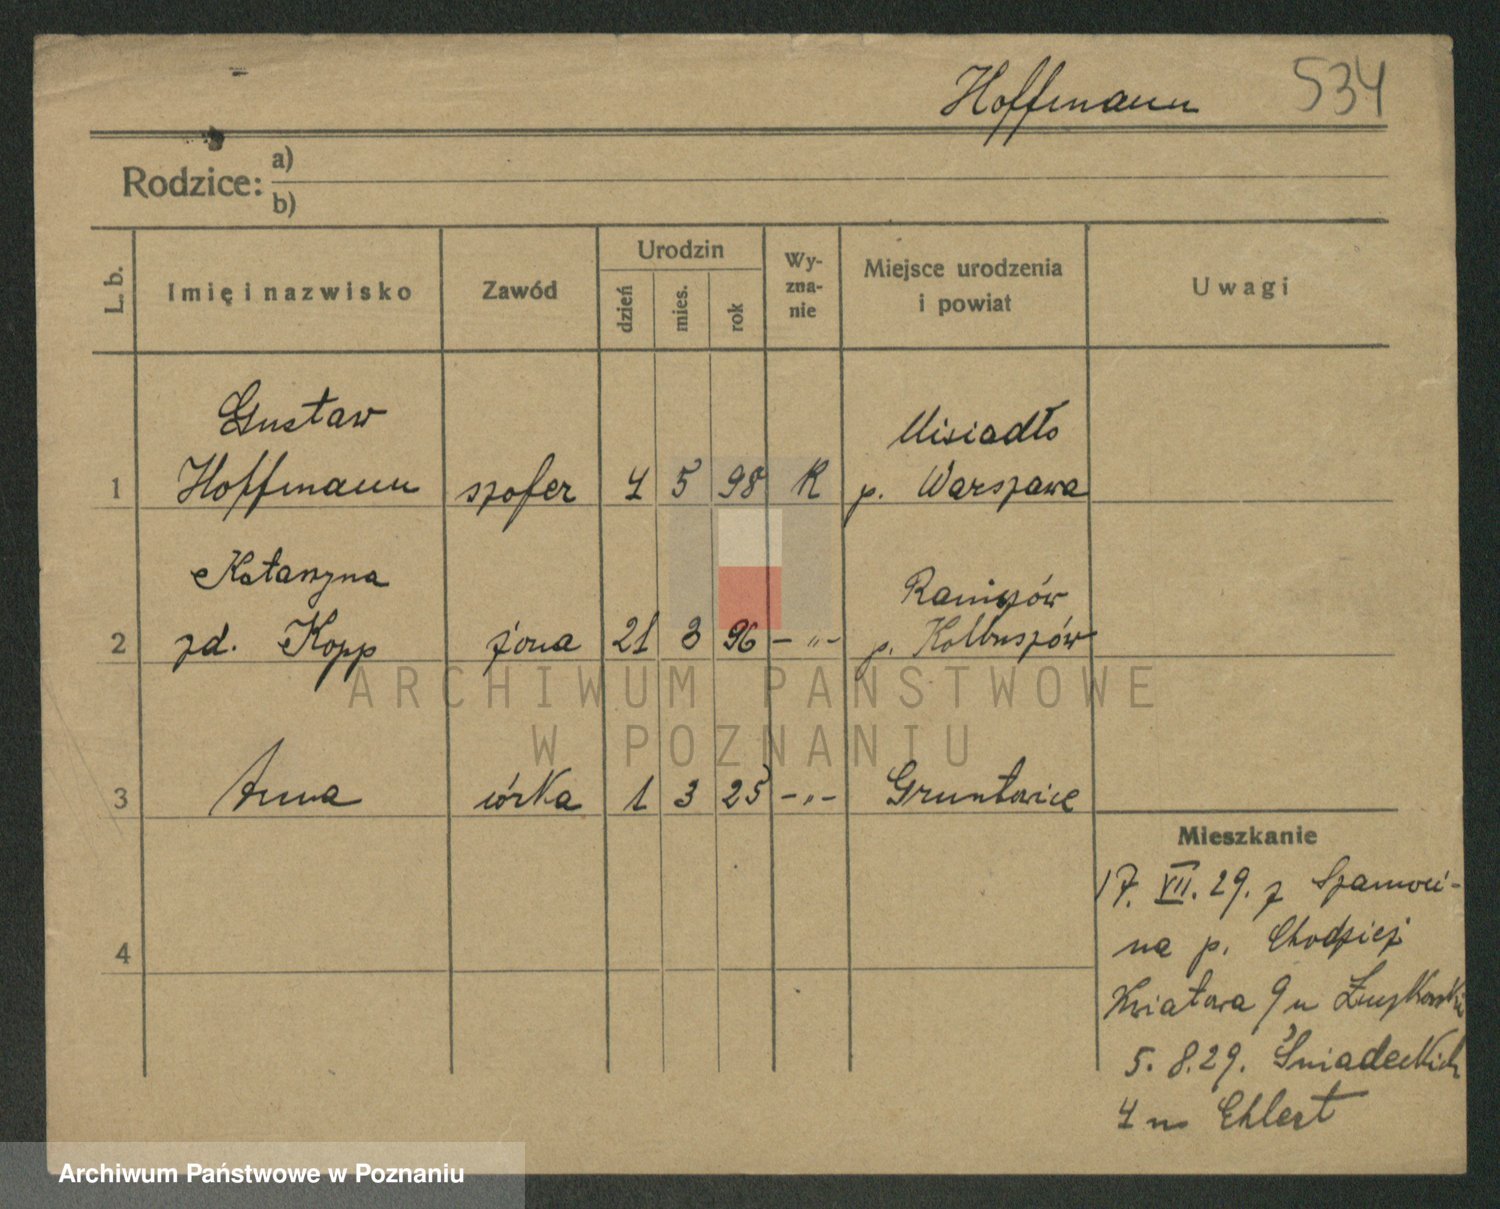 Hoffmann 534
Rodzice: a)
b)
L. b. Imię i nazwisko Zawód Urodzin dzień mies. rok Wy-zna-nie Miejsce urodzenia i powiat Uwagi
Gustaw Misiadło
1 Hoffmann szofer 4 5 98 R p. Warszawa
Katarzyna Raniszów
2 zd. Kopp żona 21 3 96 – „ – p. Kolbuszów
ARCHIWUM PAŃSTWOWE
W POZNANIU
3 Anna córka 1 3 25 – „ – Gruntowice
Mieszkanie
17. VII. 29. z Szamoci-
4 na p. Chodzież
Kwiatowa 9 u
5. 8. 29. Śniadeckich
4 u Ehlert
Archiwum Państwowe w Poznaniu